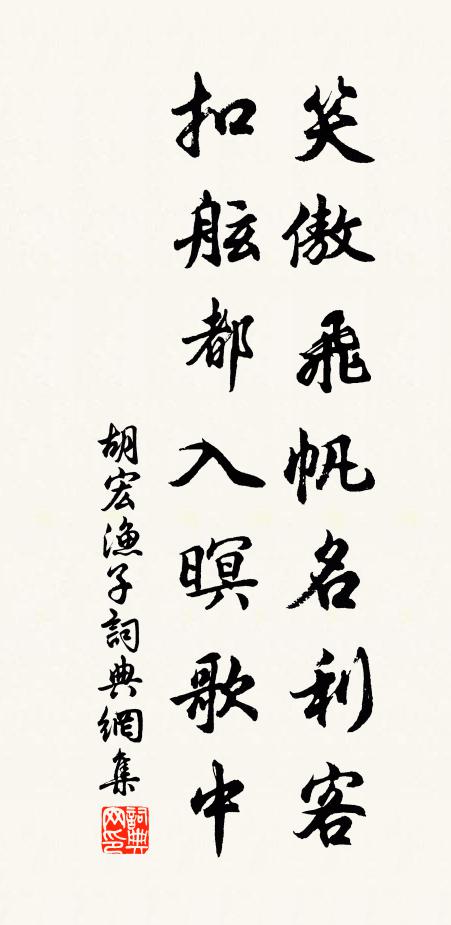 笑傲飛帆名利客
扣舷都入暝歌中
胡宏漁子詞典網集
詞典
网印